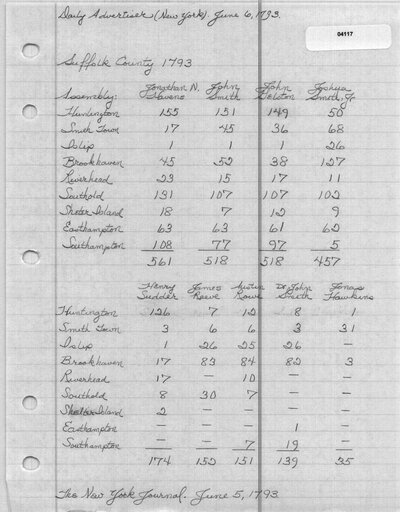 Daily Advertiser (New York). June 6, 1793.
04117
Suffolk County 1793
Jonathan N. John John Joshua
Assembly: Havens Smith Gelston Smith, Jr.
Huntington 155 151 149 50
Smith Town 17 45 36 68
Islip 1 1 1 26
Brookhaven 45 52 38 127
Riverhead 23 15 17 11
Southold 131 107 107 102
Shelter Island 18 7 12 9
Easthampton 63 63 61 62
Southampton 108 77 97 5
561 518 518 457
Henry James Austin Dr John Jonas
Scudder Reeve Roe Smith Hawkins
Huntington 126 7 12 8 1
Smith Town 3 6 6 3 31
Islip 1 26 25 26 —
Brookhaven 17 83 84 82 3
Riverhead 17 — 10 — —
Southold 8 30 7 — —
Shelter Island 2 — — — —
Easthampton — — — 1 —
Southampton — — 7 19 —
174 152 151 139 35
The New York Journal. June 5, 1793